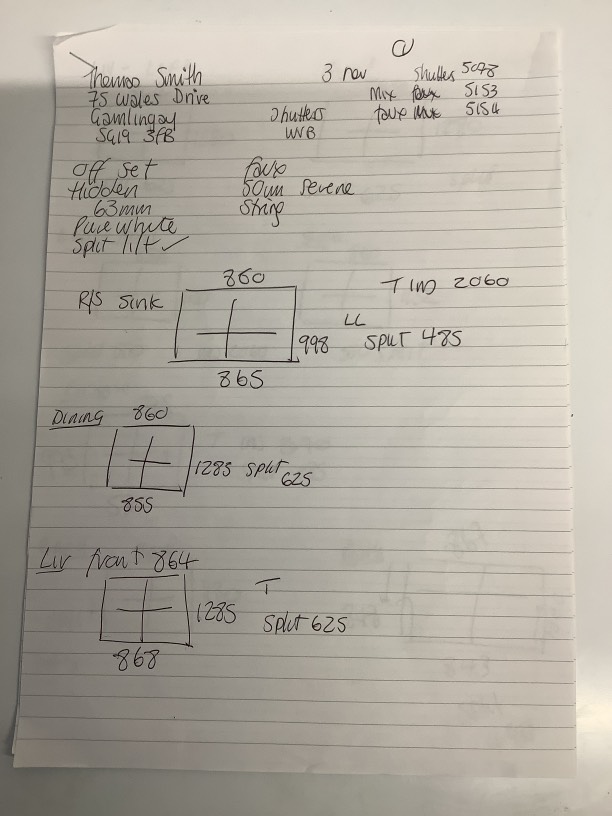 1
Thomas Smith 3 nov Shutters 5078
75 Wales Drive Mix faux 5153
Gamlingay Shutters faux 5154
SG19 3FB WVB
Off Set faux
Hidden 50mm Serene
63mm String
Pure white
Split tilt ✓
860 T (W) 2060
R/S Sink LL
998 Split 485
865
Dining 860
1285 Split 625
855
Liv front 864
T
1285 Split 625
868